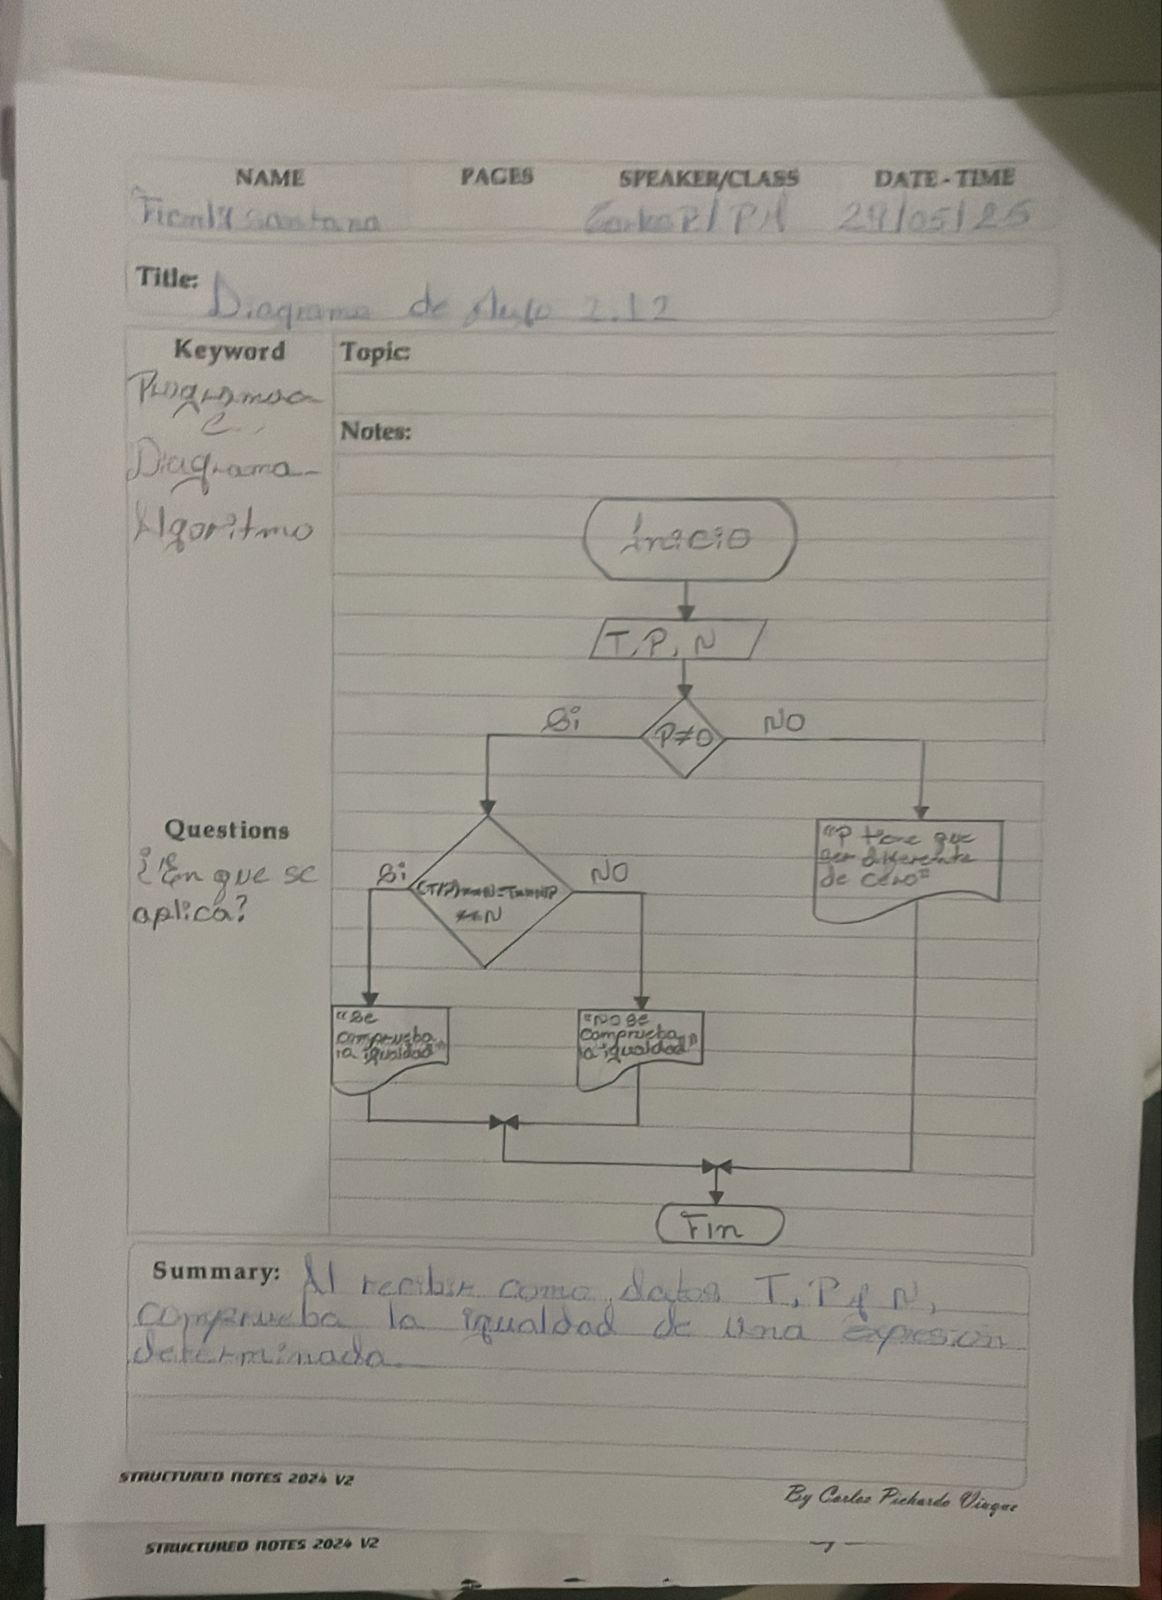 NAME PAGES SPEAKER/CLASS DATE - TIME
Santana Carlos P/ PM 29/05/25
Title: Diagrama de flujo 2.12
Keyword
Diagrama
Algoritmo
Topic:
Notes:
Inicio
T, P, N
Si P≠0 NO
"P tiene que
ser diferente
de cero"
Si NO
"Se
comprueba
la igualdad"
"No se
comprueba
la igualdad"
Fin
Questions
¿En que se
aplica?
Summary: Al recibir como datos T, P y N,
comprueba la igualdad de una expresion
determinada
STRUCTURED NOTES 2024 V2
By Carlos Pichardo Viuque
STRUCTURED NOTES 2024 V2